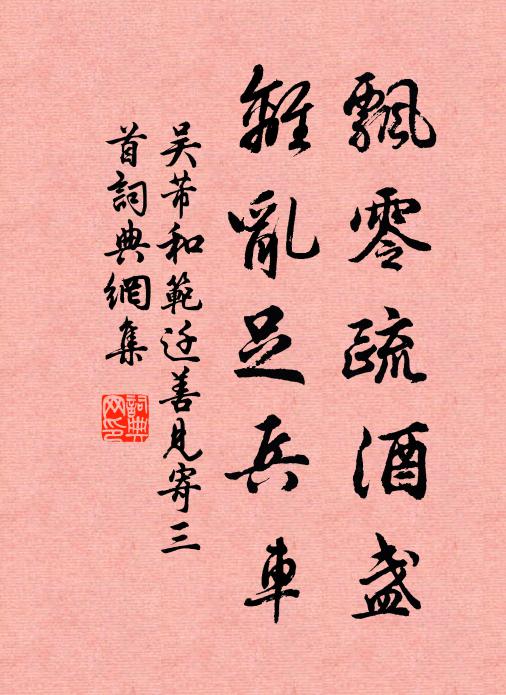 飄零疏酒盞
離亂足兵車
吳芾和範迂善見寄三
首詞典網集
詞典
网印